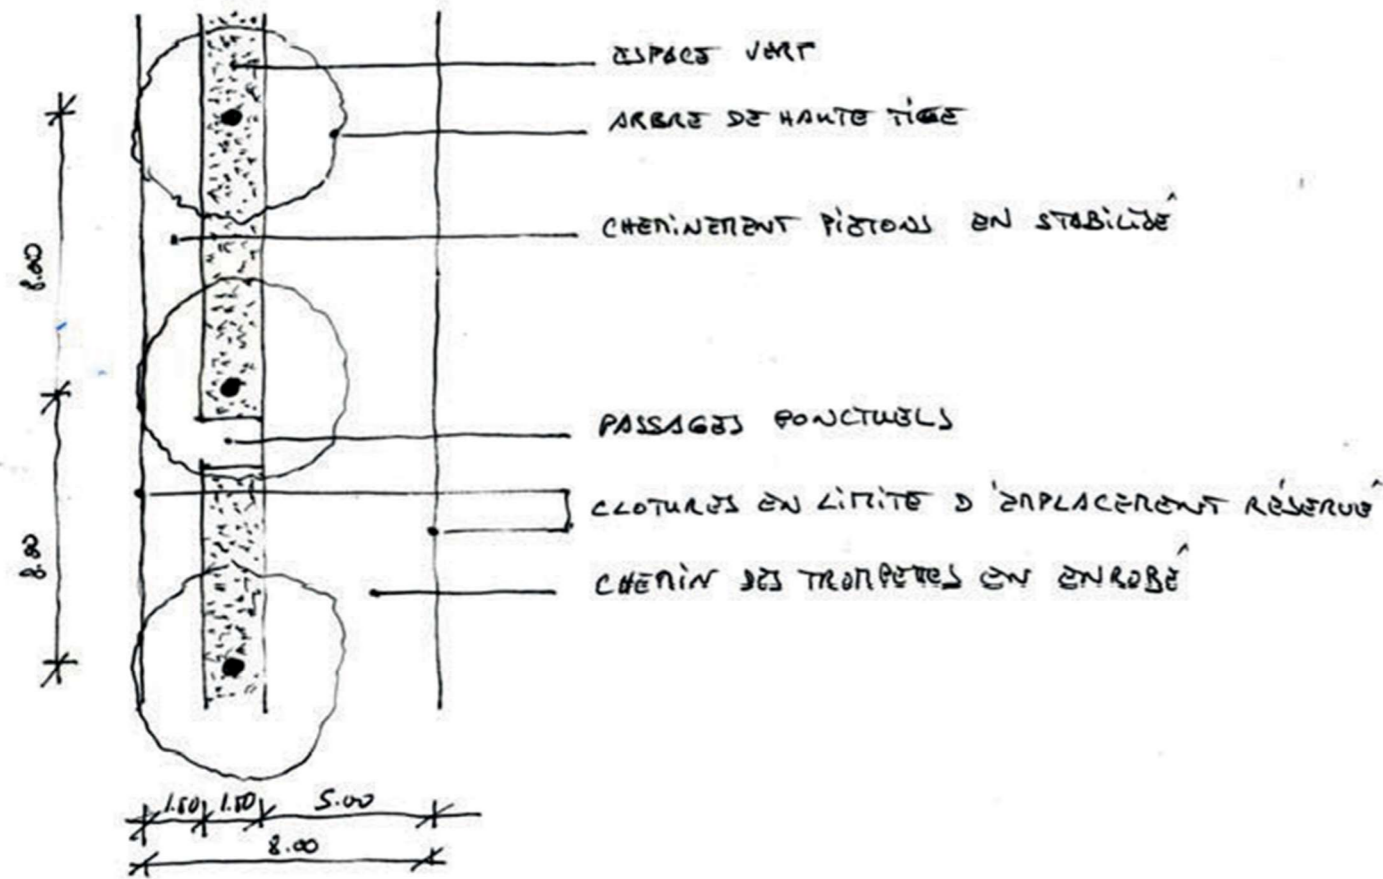 ESPACE VERT
ARBRE DE HAUTE TIGE
CHEMINEMENT PIÉTONS EN STABILISÉ
8.00
PASSAGES PONCTUELS
CLOTURES EN LIMITE D'EMPLACEMENT RÉSERVÉ
8.00
CHEMIN DES TROMPETTES EN ENROBÉ
1.50 1.50 5.00
8.00